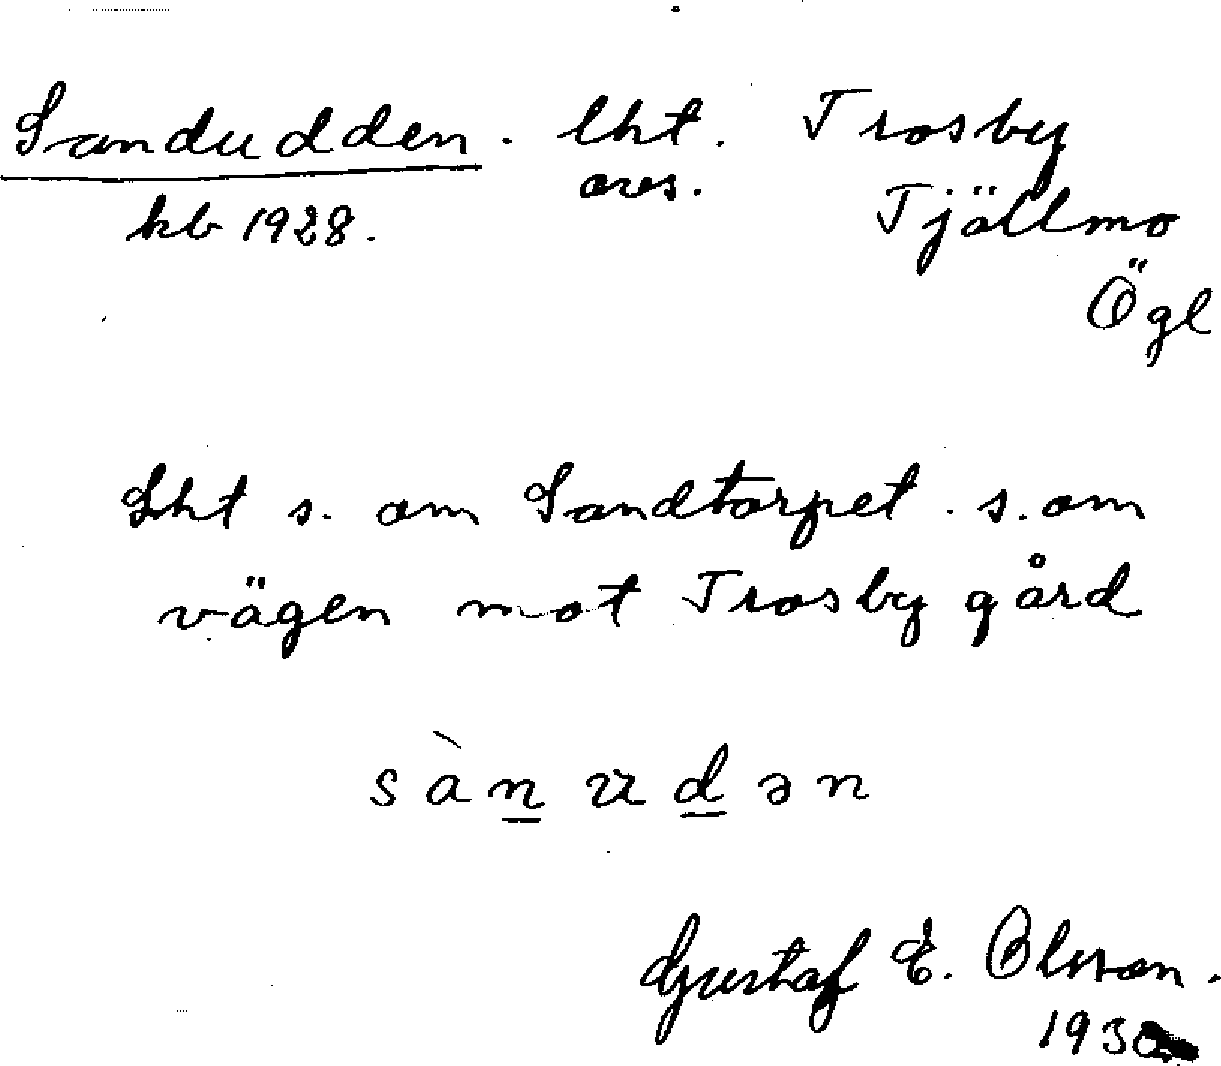 Sandudden. lht. Trosby
kb 1928. avs. Tjällmo
Ögl
Lht s. om Sandtorpet. s. om
vägen mot Trosby gård
sànudən
Gustaf E. Olsson.